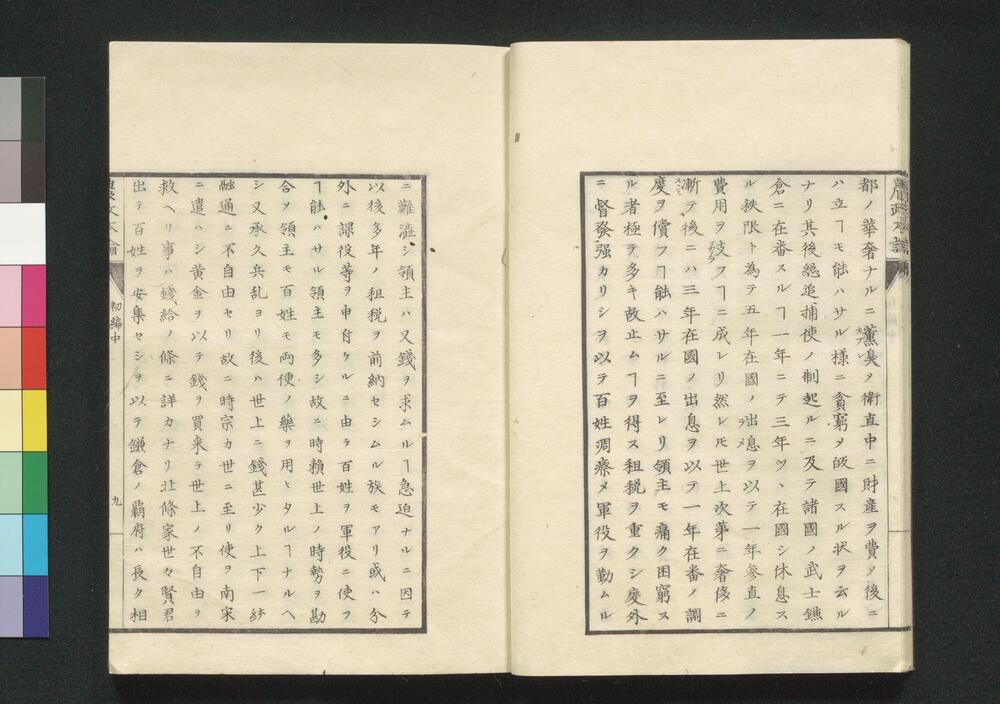 都ノ華奢ナルニ薫臭タ衛直中ニ財産ヲ費タ後ニ
ハ立ヿモ能ハサル様ニ貧窮タ皈國スル状ヲ云ル
ナリ其後總追捕使ノ制起ルニ及テ諸國ノ武士鎌
倉ニ在番スルヿ一年ニテ三年ツヽ在國シ休息ス
ル秩限ト為テ五年在國ノ出息ヲ以テ一年参直ノ
費用ヲ
フヿニ成レリ然レ𪜈世上次第ニ奢侈ニ
漸テ後ニハ三年在國ノ出息ヲ以テ一年在番ノ調
度ヲ償フヿ能ハサルニ至レリ領主モ痛ク困窮ス
ル者極テ多キ故止ムヿヲ得ス租税ヲ重クシ度外
ニ督發强カリシヲ以テ百姓凋瘵メ軍役ヲ勤ムル
ニ難澁シ領主ハ又錢ヲ求ムルヿ急迫ナルニ因テ
以後多年ノ租税ヲ前納セシムル族モアリ或ハ分
外ニ課役等ヲ申付ケルニ由テ百姓ヲ軍役ニ使フ
ヿ能ハサル領主モ多シ故ニ時賴世上ノ時勢ヲ勘
合ソ領主モ百姓モ両便ノ藥ヲ用ヒタルヿナルヘ
シ又承久兵乱ヨリ後ハ世上ニ錢甚少ク上下一統
融通ニ不自由セリ故ニ時宗カ世ニ至リ使ヲ南宋
ニ遣ハシ黄金ヲ以テ錢ヲ買来テ世上ノ不自由ヲ
救ヘリ事ハ錢給ノ條ニ詳カナリ北條家世々賢君
出テ百姓ヲ安集セシヲ以テ鎌倉ノ覇府ハ長ク相
初編中
九